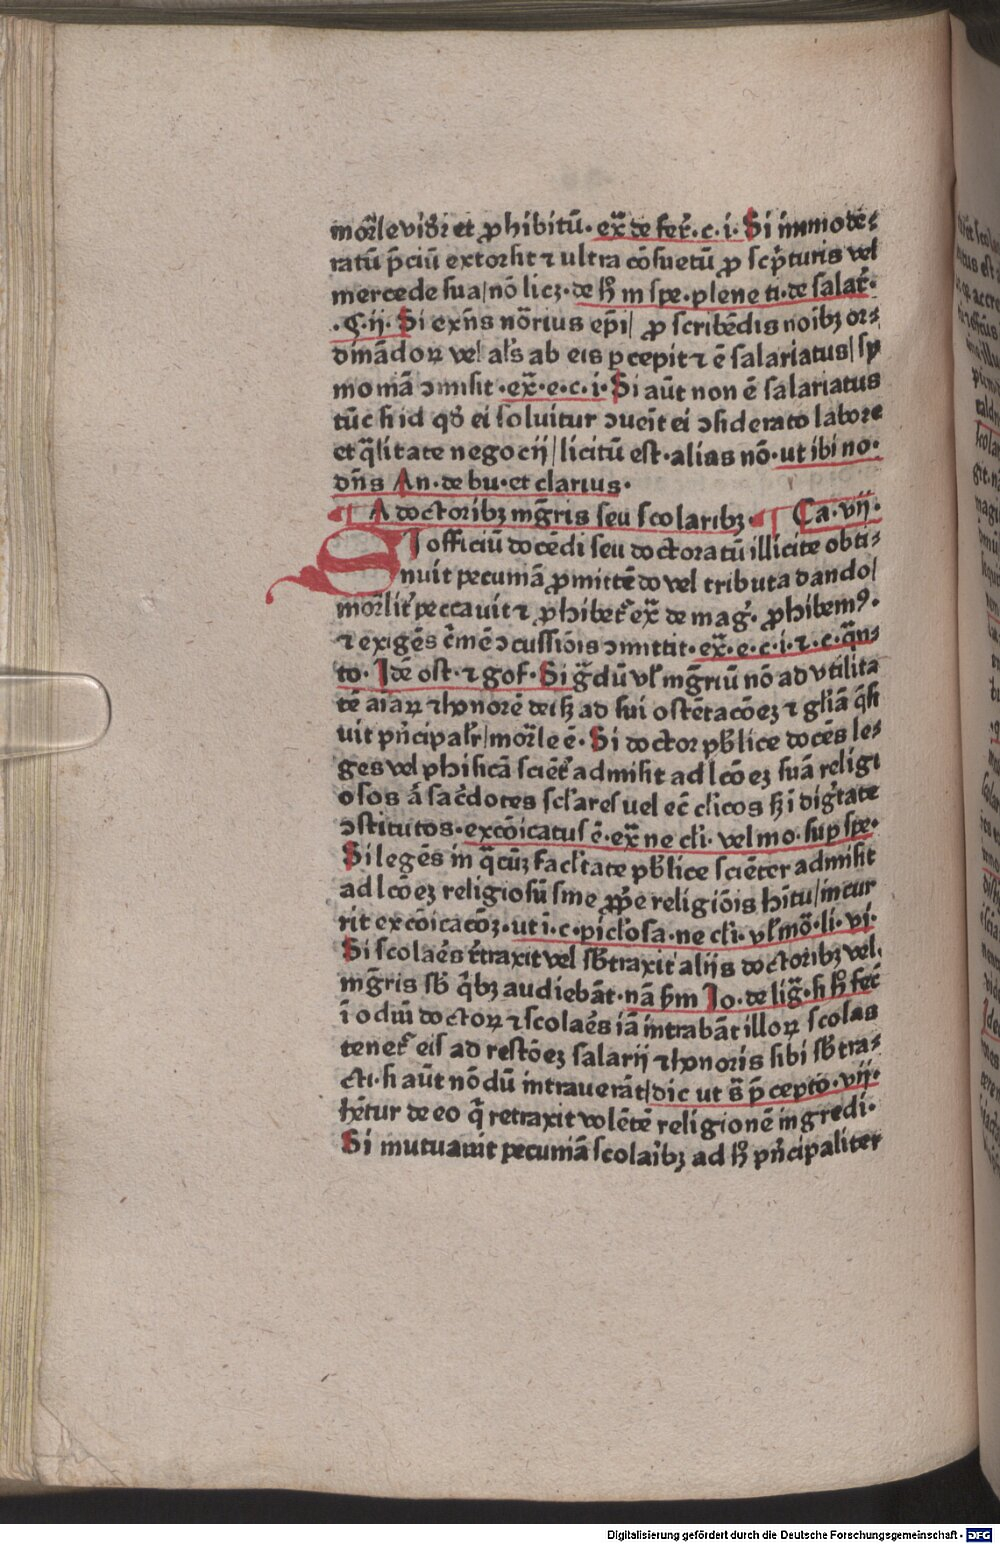 mor̃le vider̃ et ꝓhibitū. ex̃ de fer̃. c. i. Si immode⸗
ratū p̄ciū extorsit ⁊ ultra cōsuetū ꝓ scp̄turis vel
mercede sua/ nō licꝫ. de h̄ in spe. plene ti. de salar̃.
.ꝯ. ij. Si exn̄s nōrius ep̄i/ ꝓ scribēdis noībꝫ or⸗
dināndoꝝ vel als̄ ab eis ꝑcepit ⁊ ē salariatus/ sy
moniā ↄmisit .ex̃. e. c. i. Si aūt non ē salariatus
tūc si id qd̕ ei soluitur ↄueīt ei ↄsiderato labore
et q̄litate negocij/ licitū est. alias nō. ut ibi no.
dn̄s An. de bu. et clarius.
¶ A doctoribꝫ mg̃ris seu scolaribꝫ. ¶ Ca. vij.
SI officiū docēdi seu doctoratū illicite obti⸗
nuit pecuniā ꝓmittēdo vel tributa dando/
mor̃lit̕ peccauit ⁊ ꝓhibet̕ ex̃ de mag̕. ꝓhibemꝰ.
⁊ exigēs c̄mē ↄcussiōis ↄmittit. ex̃. e. c. i. ⁊. c. q̄n⸗
to. Idē ost. ⁊ gof. Si g̃dū vl̕ mg̃riū nō ad vtilita
tē aīaꝝ ⁊ honorē dei sꝫ ad sui ostētacōeꝫ ⁊ gl̄iā q̄si
uit pn̄cipalr̕/ mor̃le ē. Si doctor pb̄lice docēs le⸗
ges vel phisicā sciēt̕ admisit ad lcōeꝫ suā religi
osos ā sac̄dotes scl̕ares uel ec̄ cl̕icos h̄ī dig̕tate
ↄstitutos. excōicatus ē. ex̃ ne cl̕i. vel mo. sup spe.
Si legēs in q̄cūꝫ facl̕tate pb̄lice sciēter admisit
ad lcōeꝫ religiosū sine ꝓp̄e religiōis h̄itu/ incur
rit excōicacōꝫ. ut ī. c. picl̕osa. ne cl̕i. vl̕ mō. li. vi.
Si scolaēs r̄traxit vel sb̄traxit alijs doctoribꝫ vel.
mg̃ris sb̄ q̕bꝫ audiebāt. nā sm̄ Jo. de lig̃. si h̄ fec̄
ī odiū doctoꝝ ⁊ scolaēs iā intrabāt illoꝝ scolas
tenet̕ eis ad restōeꝫ salarij ⁊ honoris sibi sb̄tra⸗
cti. si aūt nōdū intrauerāt/ dic ut s̄ p̄cepto. vij.
h̄etur de eo q̄ retraxit volētē religionē ingredi.
Si mutuauit pecuniā scolar̕ibꝫ ad h̄ pn̄cipaliter
Digitalisierung gefördert durch die Deutsche Forschungsgemeinschaft - DFG